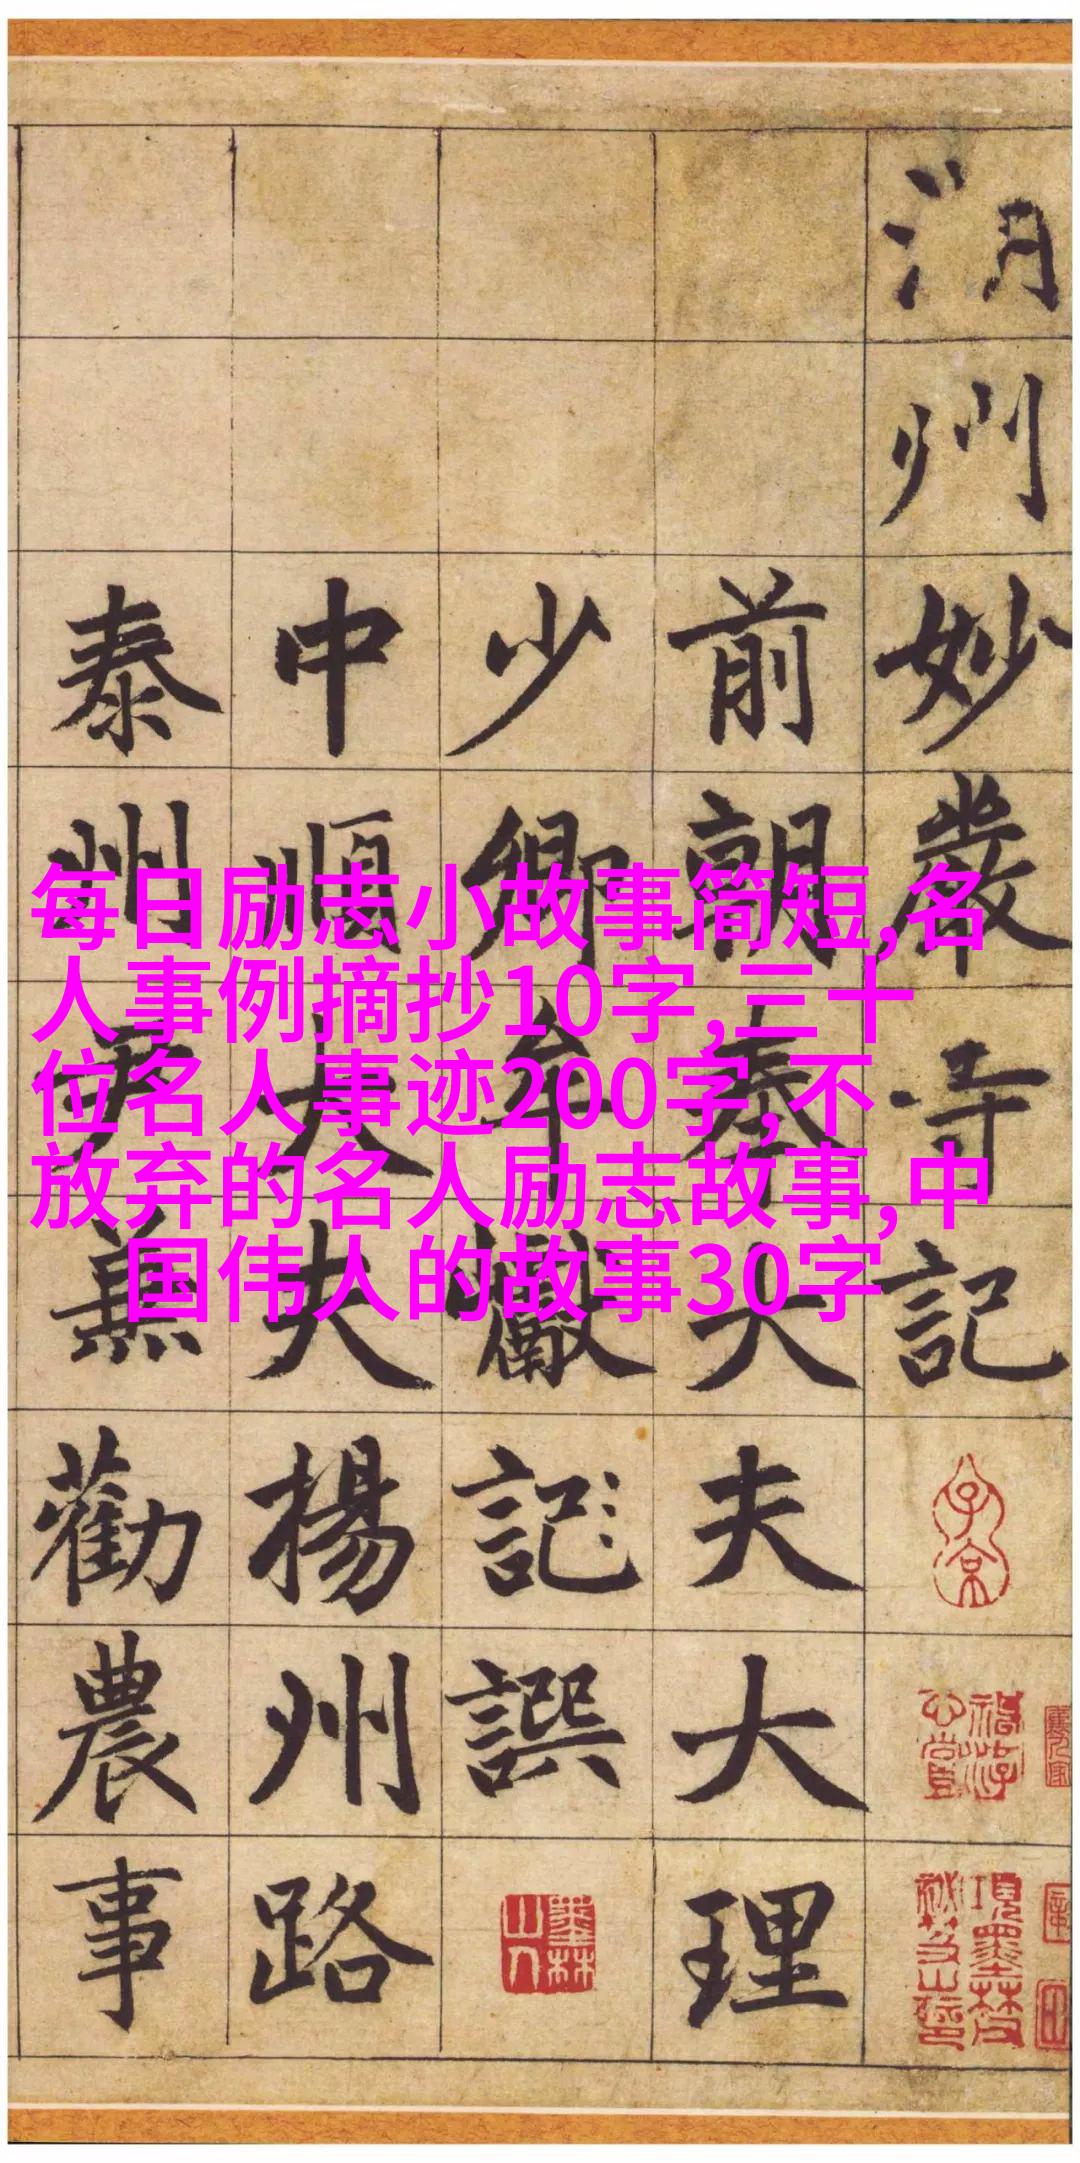 每日励志小故事简短,名
人事例摘抄10字,三十
位名人事迹200字,不
放弃的名人励志故事,中
国伟人的故事30字
州妙嚴寺記
子京
前朝奉大夫大理
少卿牟巘記譔
墨林山人
中順大夫揚州路
泰州尹兼勸農事